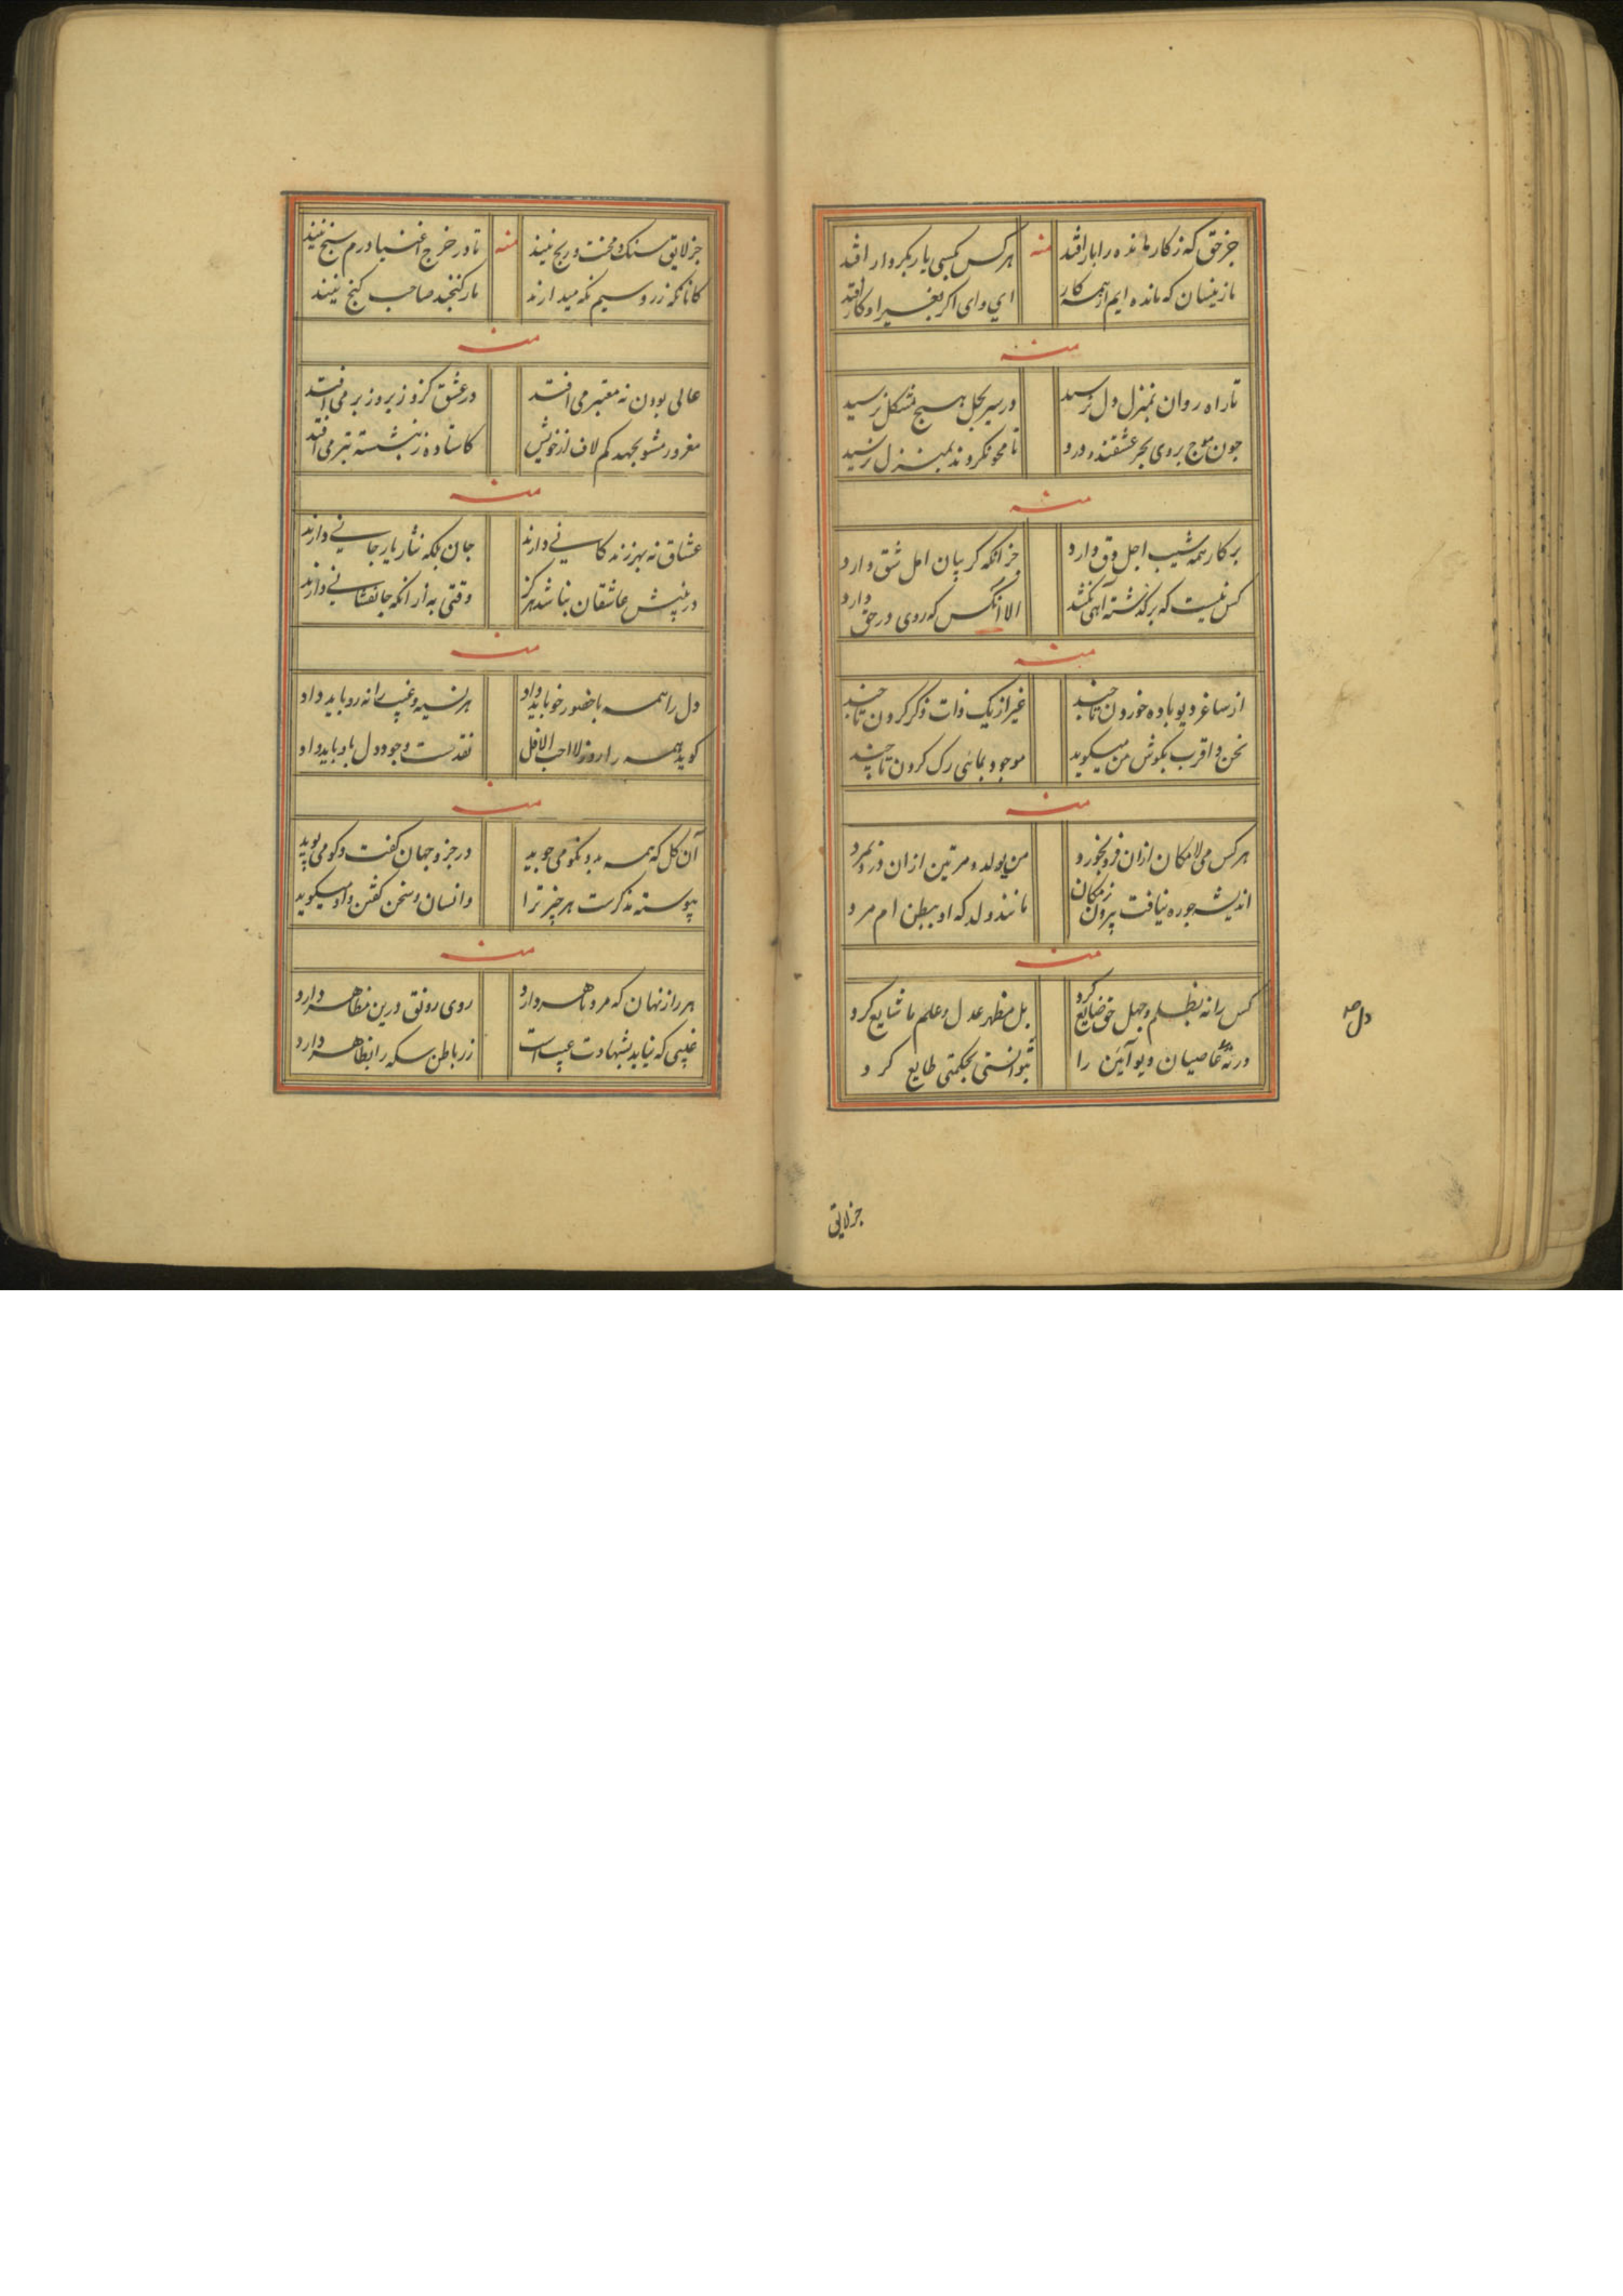 جز حق که ز کار مانده را بار افتد منه هر کس کسی یار بکردار افتد
ما زینسان که مانده ایم از همه کار ای وای اگر بغیر او کار افتد
منه
تا راه روان بمنزل دل نرسید در سیر بحل هیچ مشکل نرسید
چون موج بروی بحر عشقند درو تا محو نکردند بمنزل نرسید
منه
بر کار همه شیب اجل دق دارد جز انکه کریبان امل شق دارد
کس نیست که بر کذشته آهی نکشد الا انکس که روی در حق دارد
منه
از ساغر دیو باده خوردن تا چند غیر از یک ذات ذکر کردن تا چند
نحن و اقرب بکوش من میکوید موجود بمائی رک کردن تا چند
منه
هر کس می لامکان ازان فرد نخورد من یولد مرتین ازان درد نمرد
اندیشه جو ره نیافت بیرون ز مکان مانند ولد که او ببطن ام مرد
منه
کس را نه بظلم و جهل حق ضایع کرد بل مظهر عدل و علم ما شایع کرد
ورنه عاصیان دیو آیین را بتوانستی بحکمتی طایع کرد
دل
جز لایق
جز لایق سنک و محنت و رنج نیند منه تا در خرج اغنیا درم سنج نیند
کانانکه زر و سیم نکه میدارند مار کنجند صاحب کنج نیند
منه
عالی بودن نه معتبر می افتد در عشق کزو زیر و زبر می افتد
مغرور مشو بجهد کم لاف از خویش کاستاده ز بنشسته بتر می افتد
منه
عشاق نه بهر زندکانی دارند جان بلکه نثار یار جانی دارند
در پیش عاشقان نباشد هرکز وقتی به از انکه جانفشانی دارند
منه
دل را همه با حضور خو باید داد هر نسیه و غیب را نه رو باید داد
کوید همه را روز لا احب الافل نقدست وجود دل باو باید داد
منه
آن کل که همه بد و نکو می جوید در جزو جهان کفت و کو می پوید
پیوسته مذکرست هر چیز ترا و انسان و سخن کفتن و او میکوید
منه
هر راز نهان که مرد ماهر دارد روی رونق درین مظاهر دارد
غیبی که نیاید بشهادت عیب است زر باطن سکه را بظاهر دارد